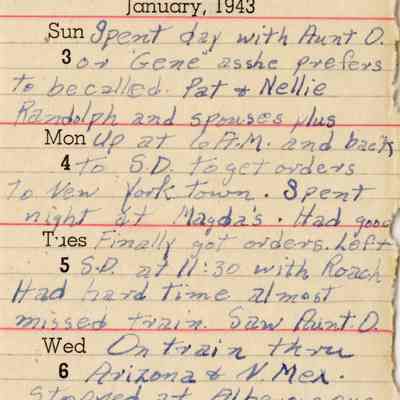 January, 1943
Sun Spent day with Aunt D.
3 or "Gene" asshe prefers
to be called. Pat & Nellie
Randolph and spouses plus
Mon Up at 6 A.M. and back
4 to S.D. to get orders
To New York town. Spent
night at Magda's. Had good
Tues Finally got orders. Left
5 S.D. at 11:30 with Roach
Had hard time almost
missed train. Saw Aunt D.
Wed On train thru
6 Arizona & N Mex.
Stopped at